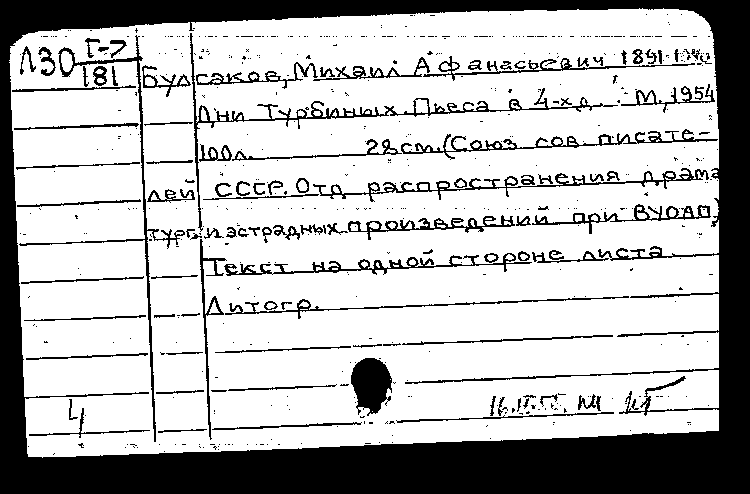 Л30 Г-7
181
Булгаков, Михаил Афанасьевич 1891-1940
Дни Турбиных. Пьеса в 4-х д. М., 1954
100л. 28см. (Союз сов. писате-
лей СССР. Отд распространения драма
тург и эстрадных произведений при ВУОАП)
Текст на одной стороне листа.
Литогр.
4